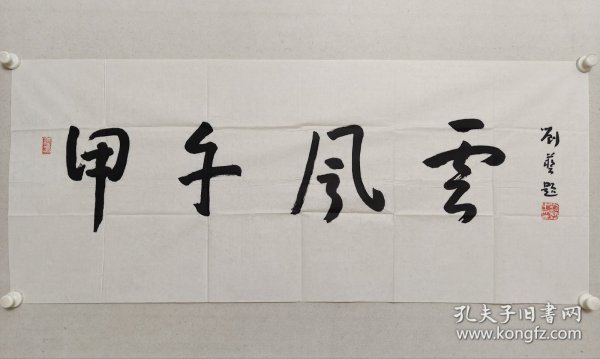 甲午風雲
劉藝題
孔夫子旧书网
www.kongfz.com